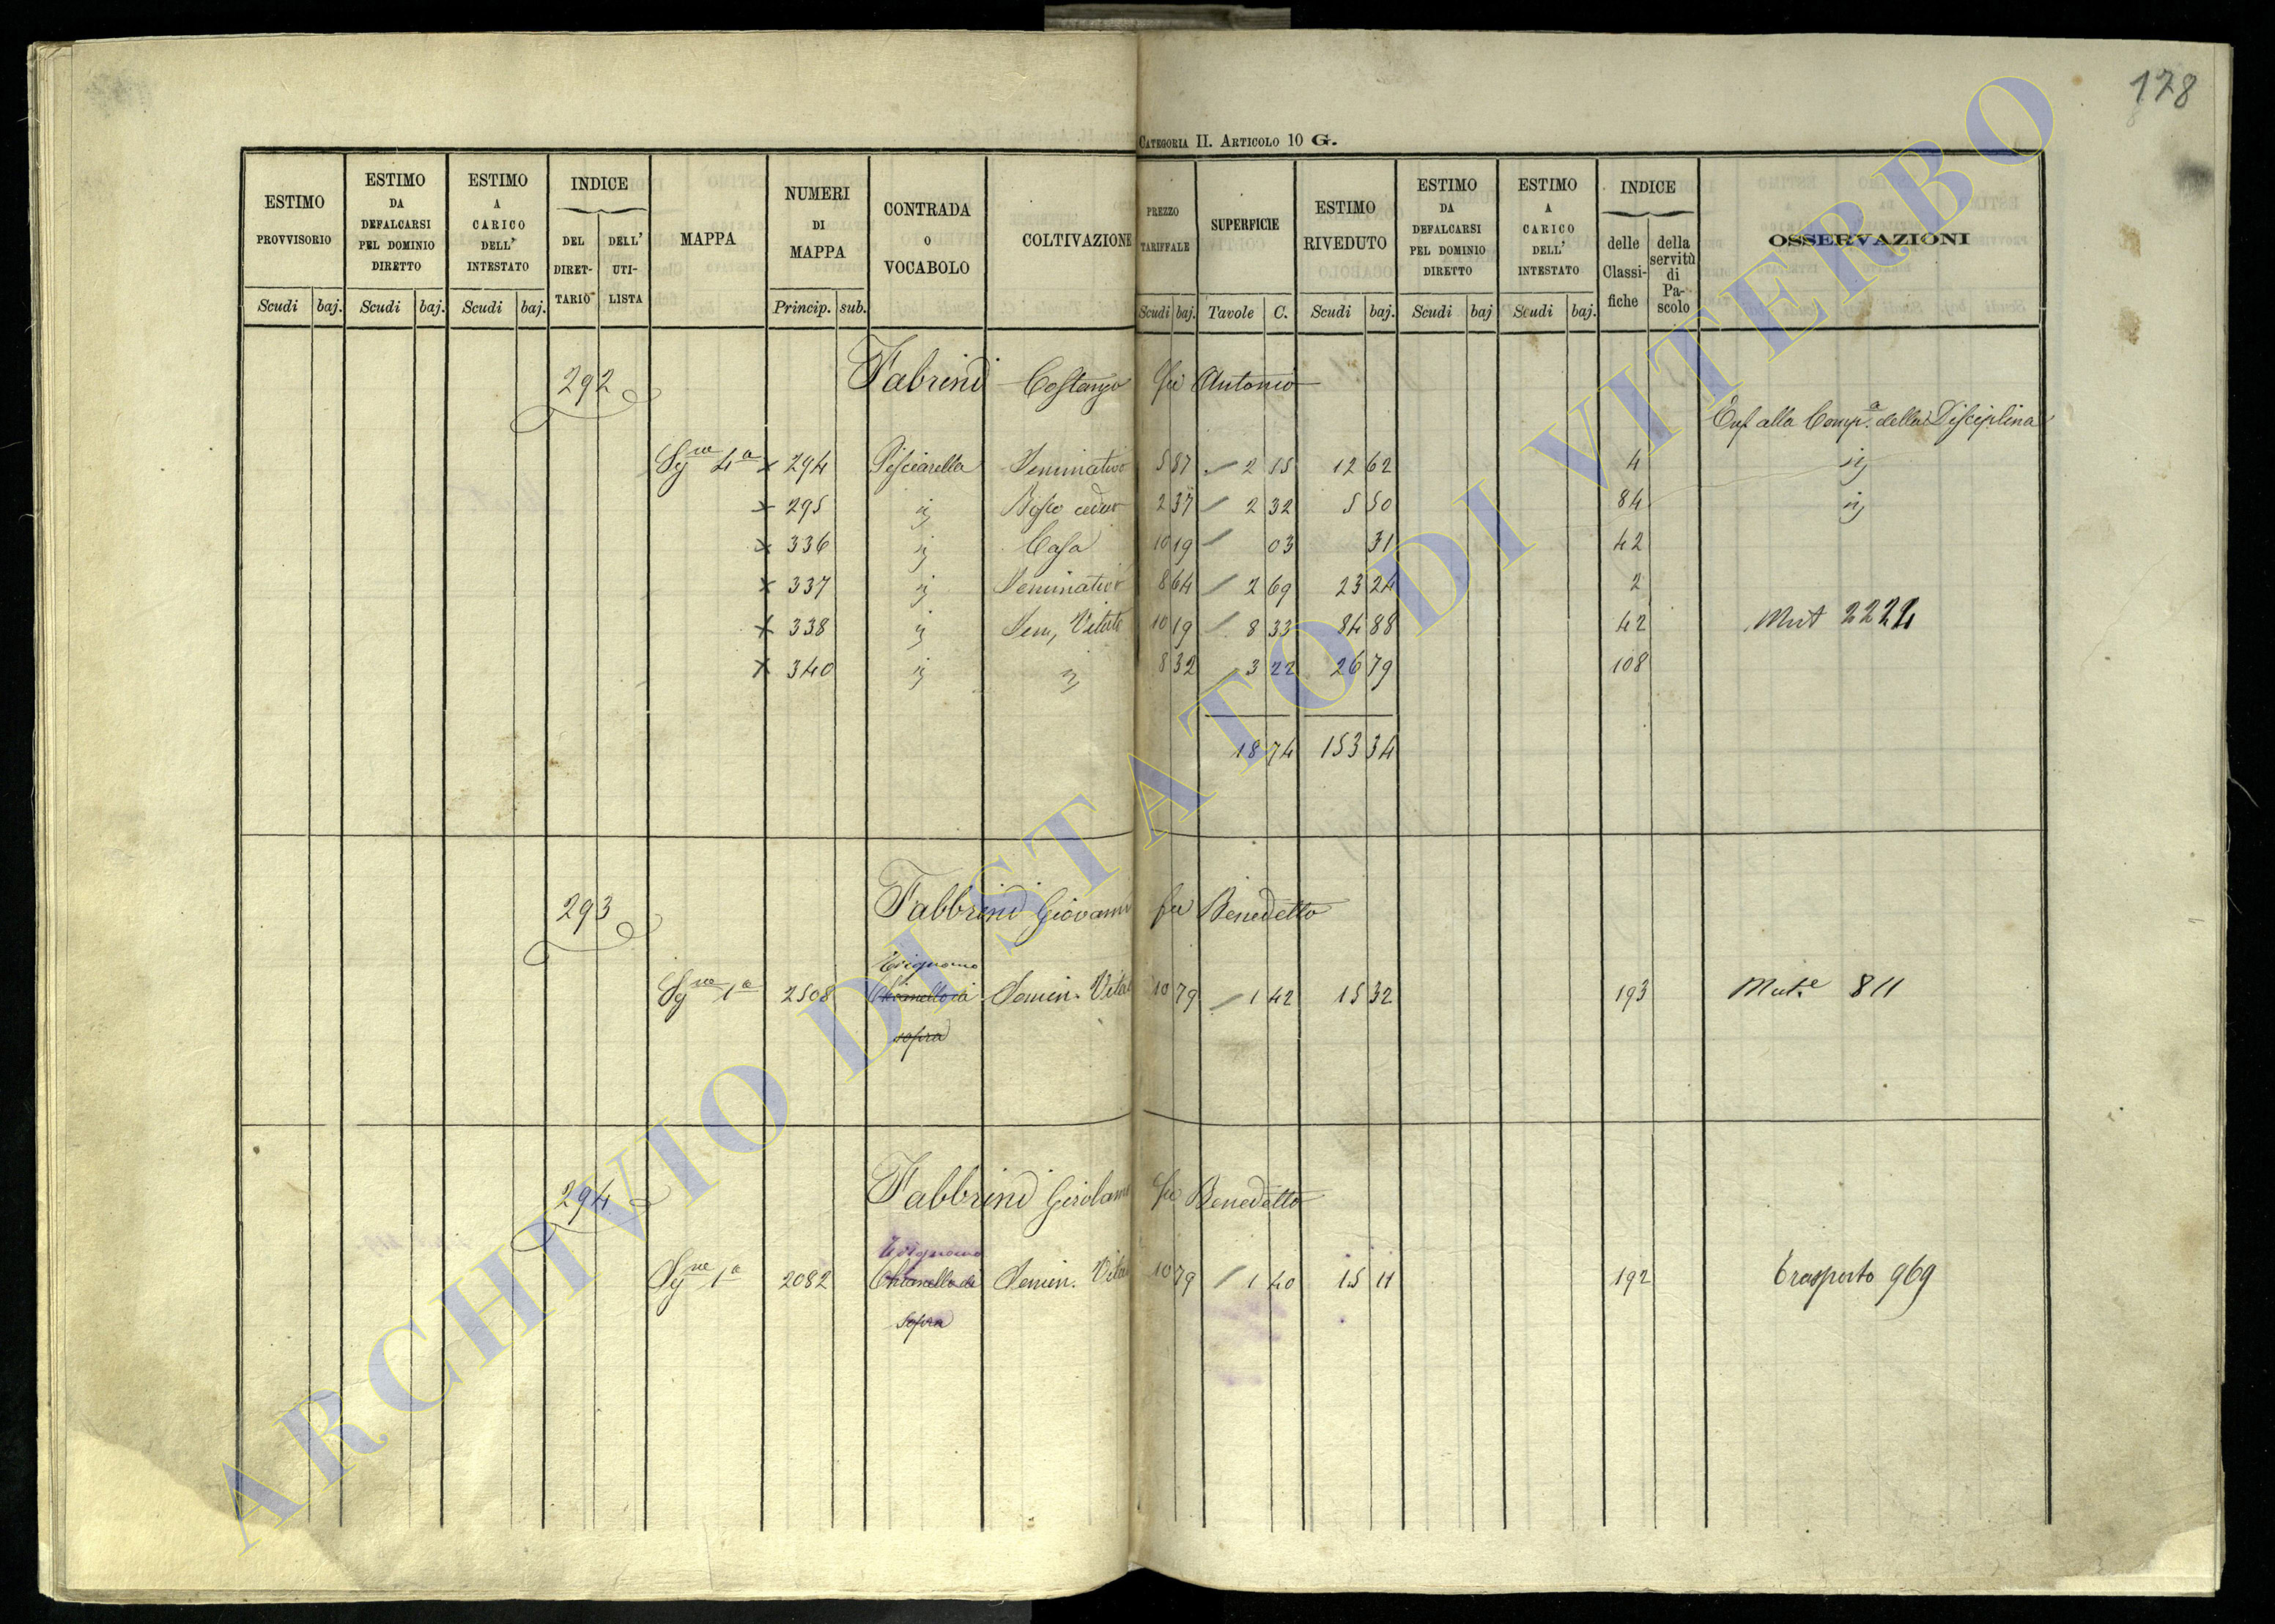 178
CATEGORIA II. ARTICOLO 10 G.
ESTIMO PROVVISORIO Scudi baj.
ESTIMO DA DEFALCARSI PEL DOMINIO DIRETTO Scudi baj.
ESTIMO A CARICO DELL' INTESTATO Scudi baj.
INDICE DEL DIRET-TARIO DELL' UTI-LISTA
MAPPA
NUMERI DI MAPPA Princip. sub.
CONTRADA O VOCABOLO
COLTIVAZIONE
PREZZO TARIFFALE Scudi baj.
SUPERFICIE Tavole C.
ESTIMO RIVEDUTO Scudi baj.
ESTIMO DA DEFALCARSI PEL DOMINIO DIRETTO Scudi baj
ESTIMO A CARICO DELL' INTESTATO Scudi baj.
INDICE delle Classi-fiche della servitù di Pa-scolo
OSSERVAZIONI
292 Fabrini Costanzo fu Antonio
Enf alla Comp.a della Disciplina
Sg.ne 4a x 294 Pisciarella Seminativo 5 87 / 2 15 12 62 4 ij
x 295 ij Bosco ceduo 2 37 / 2 32 5 50 84 ij
x 336 ij Casa 10 19 / 03 31 42
x 337 ij Seminativo 8 64 / 2 69 23 24 2
x 338 ij Sem, Vitato 10 19 / 8 33 84 88 42 Mut 2224
x 340 ij ij 8 32 / 3 22 26 79 108
18 74 153 34
293 Fabbrini Giovanni fu Benedetto
Trignano
Sg.ne 1a 2508 Chianello di Semin. Vitat 10 79 / 1 42 15 32 193 Mut.e 811
sopra
294 Fabbrini Girolamo fu Benedetto
Trignano
Sg.ne 1a 2082 Chianello di Semin. Vitat 10 79 / 1 40 15 11 192 Trasporto 969
sopra
ARCHIVIO DI STATO DI VITERBO